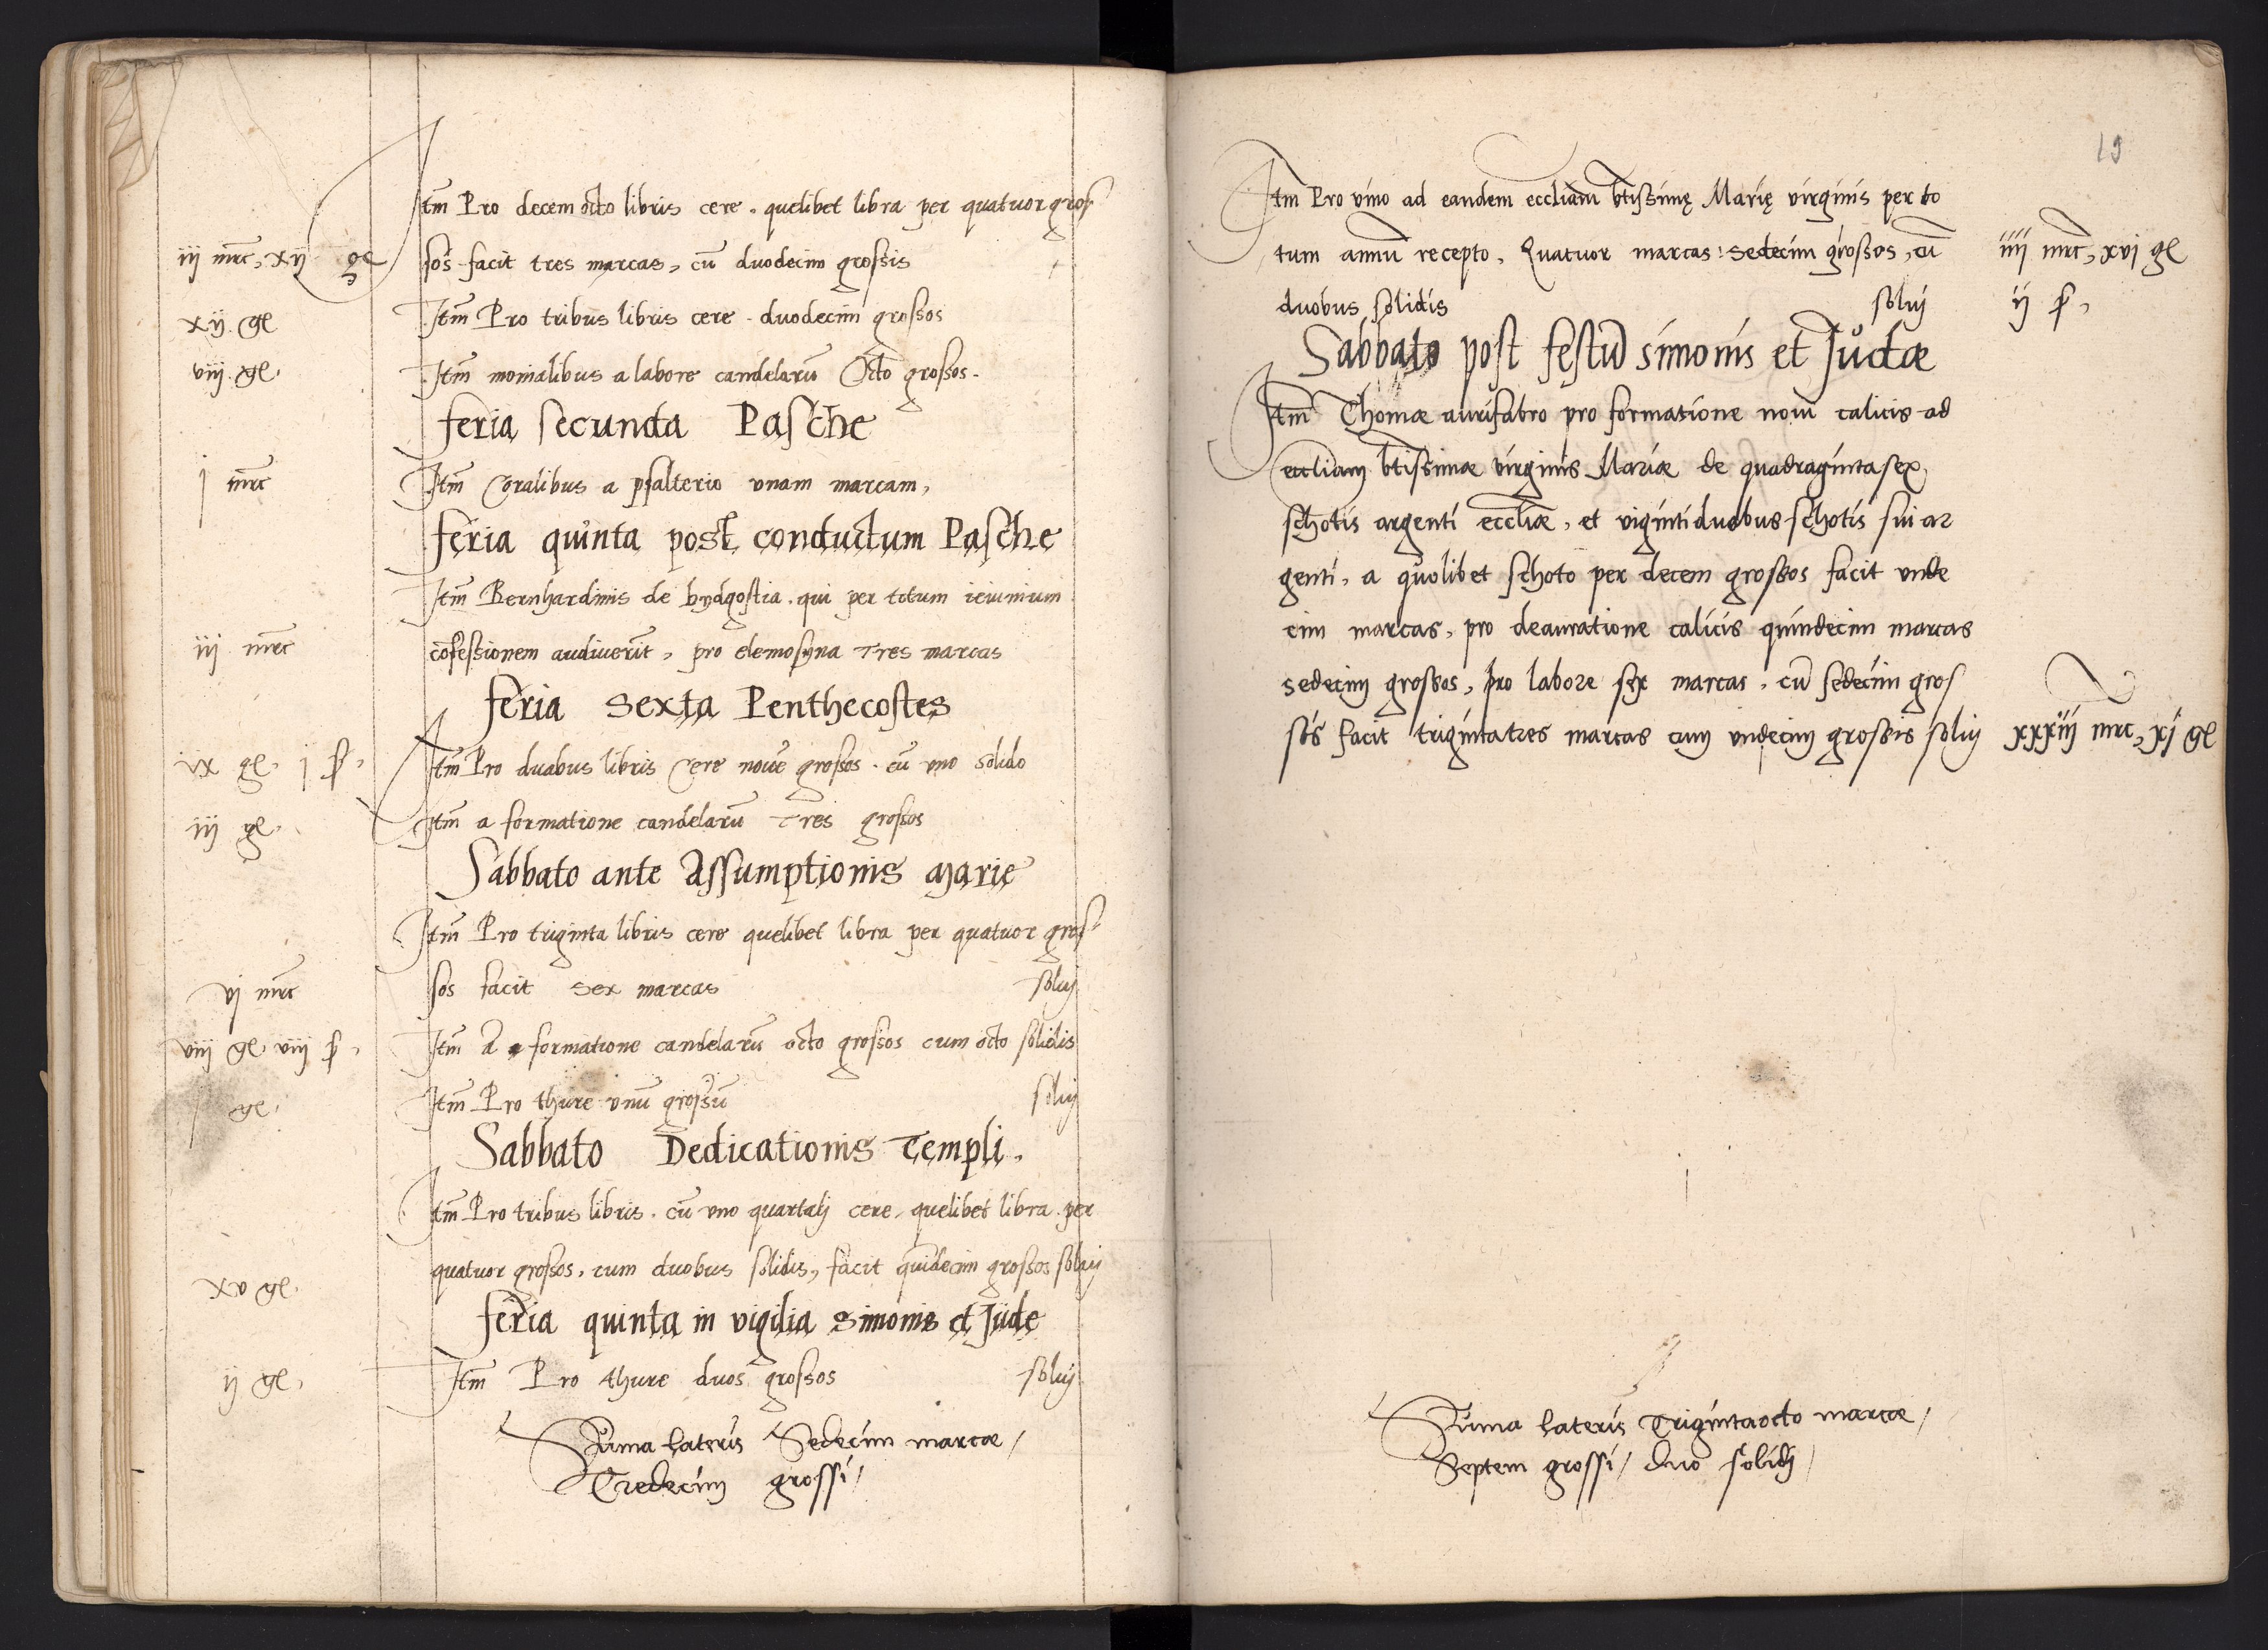 Itm Pro decem octo libris cere. quelibet libra per quatuor gros
iij mrc, xij gl sos facit tres marcas, cū duodecim grossis
xij. gl Itm Pro tribus libris cere. duodecim grossos
viij. gl. Itm monialibus a labore candelarū Octo grossos.
feria secunda Pasche
j mrc Itm Coralibus a psalterio vnam marcam,
feria quinta post conductum Pasche
Itm Bernhardinis de bydgostia. qui per totum ieiunium
iij mrc cōfessionem audiuerīt, pro elemosyna Tres marcas
feria Sexta Penthecostes
ix gl. j ẜ. Itm Pro duabus libris Cere nouē grossos. cū vno solido
iij gl. Itm a formatione candelarū Tres grossos
Sabbato ante Assumptionis Marie
Itm Pro triginta libris cere quelibet libra per quatuor gros
vj mrc sos facit sex marcas soluj
viij gl. viij ẜ. Itm A formatione candelarū octo grossos cum octo solidis
j gl. Itm Pro thure vnū grossū soluj
Sabbato Dedicationis Templi.
Itm Pro tribus libris. cū vno quartalj cere, quelibet libra. per
xv gl. quatuor grossos, cum duobus solidis, facit quīdecim grossos soluj
feria quinta in vigilia Simonis et Jude
ij gl. Itm Pro thure duos grossos soluj
Suma lateris Sedecim marcæ /
Tredecim grossi /
19
Itm Pro vino ad eandem eccliam btissimę Marię virginis per to
tum annū recepto, Quatuor marcas: Sedecim grossos, cū iiij mrc, xvj gl
duobus solidis soluj ij ẜ.
Sabbato post festū simonis et Judæ
Itm Thomæ aurifabro pro formatione noui calicis ad
eccliam btissimæ virginis Mariæ de quadragintasex
schotis argenti eccliæ, et vigintiduobus schotis sui ar
genti, a quolibet schoto per decem grossos facit vnde
cim marcas, pro deauratione calicis quindecim marcas
sedecim grossos, pro labore sex marcas, cū sedecim gros
sos facit trigintatres marcas cum vndecim grossis soluj xxxiij mrc, xj gl
Suma lateris Trigintaocto marcæ /
Septem grossi / duo solidj /